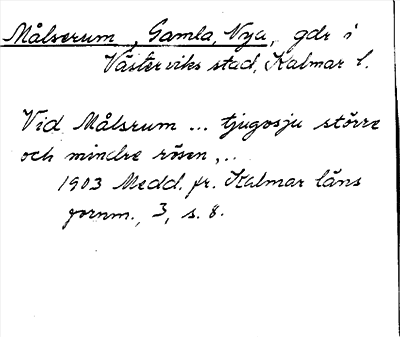 Målserum, Gamla, Nya, gdr i
Västerviks stad, Kalmar l.
Vid Målsrum ... tjugosju större
och mindre rösen,..
1903 Medd. fr. Kalmar läns
fornm., 3, s. 8.